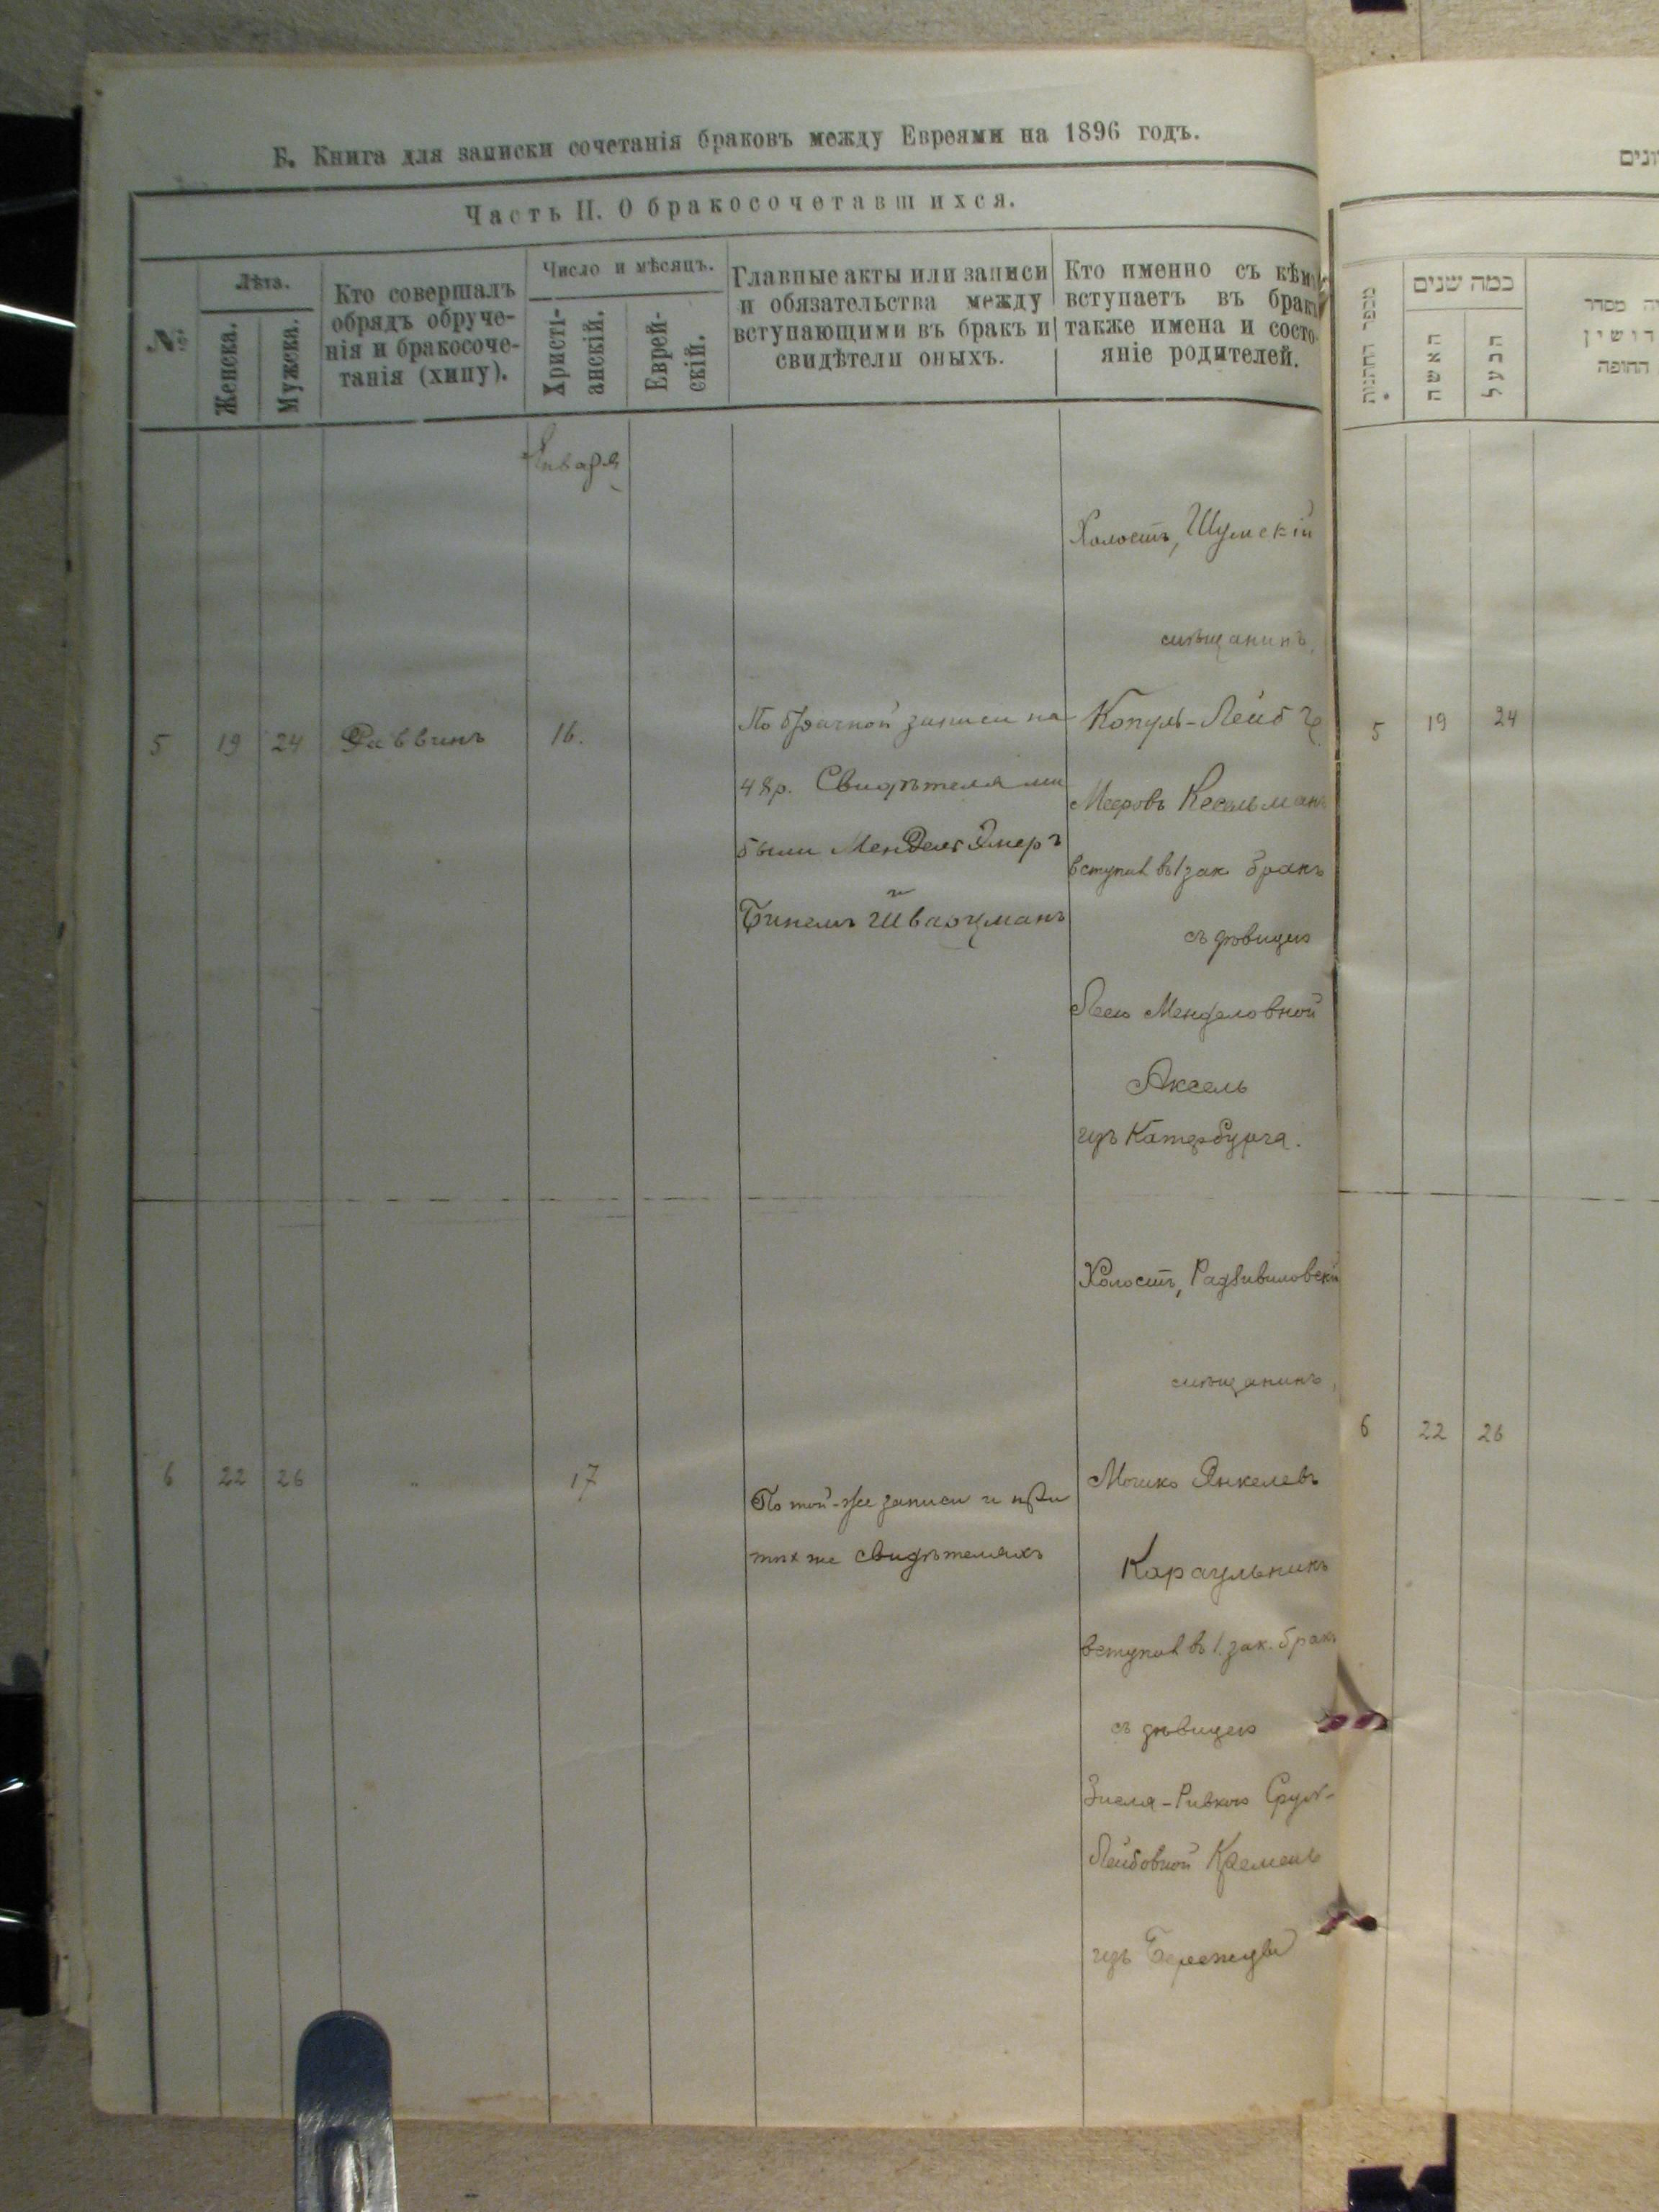 Б. Книга для записки сочетанія браковъ между Евреями на 1896 годъ.
Часть II. О бракосочетавшихся.
№
Лѣта.
Женска.
Мужска.
Кто совершалъ
обрядъ обруче-
нія и бракосоче-
танія (хипу).
Число и мѣсяцъ.
Христі-
анскій.
Еврей-
скій.
Главные акты или записи
и обязательства между
вступающими въ бракъ и
свидѣтели оныхъ.
Кто именно съ кѣмъ
вступаетъ въ бракъ
также имена и состо-
яніе родителей.
Января
5 19 24 Раввинъ 16.
По брачной записи на
48р. Свидѣтелями
были Мендель Эмеръ
и
Бинемъ Шварцманъ
Холостъ, Шумскій
мѣщанинъ,
Копуль-Лейбъ
Мееровъ Кесельманъ
вступил въ 1 зак. бракъ
съ дѣвицею
Леею Менделовной
Аксель
изъ Катербурга.
6 22 26 " 17
По той-же записи и при
тѣхже свидѣтеляхъ
Холостъ, Радзивиловскій
мѣщанинъ,
Мошко Янкелевъ
Караульникъ
вступил въ 1. зак. бракъ
съ дѣвицею
Зисля-Ривкою Срул-
Лейбовной Кремень
изъ Бережцы
מספר החתונות
כמה שנים
האשה
הבעל
מסדר
החופה
5 19 24
6 22 26